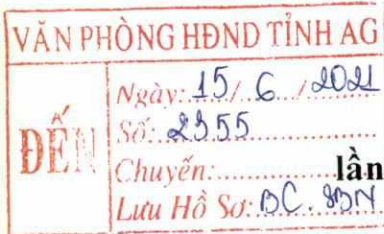 VĂN PHÒNG HĐND TỈNH AG
ĐẾN
Ngày: 15/ 6 / 2021
Số: 2355
Chuyển:
lần
Lưu Hồ Sơ: BC.